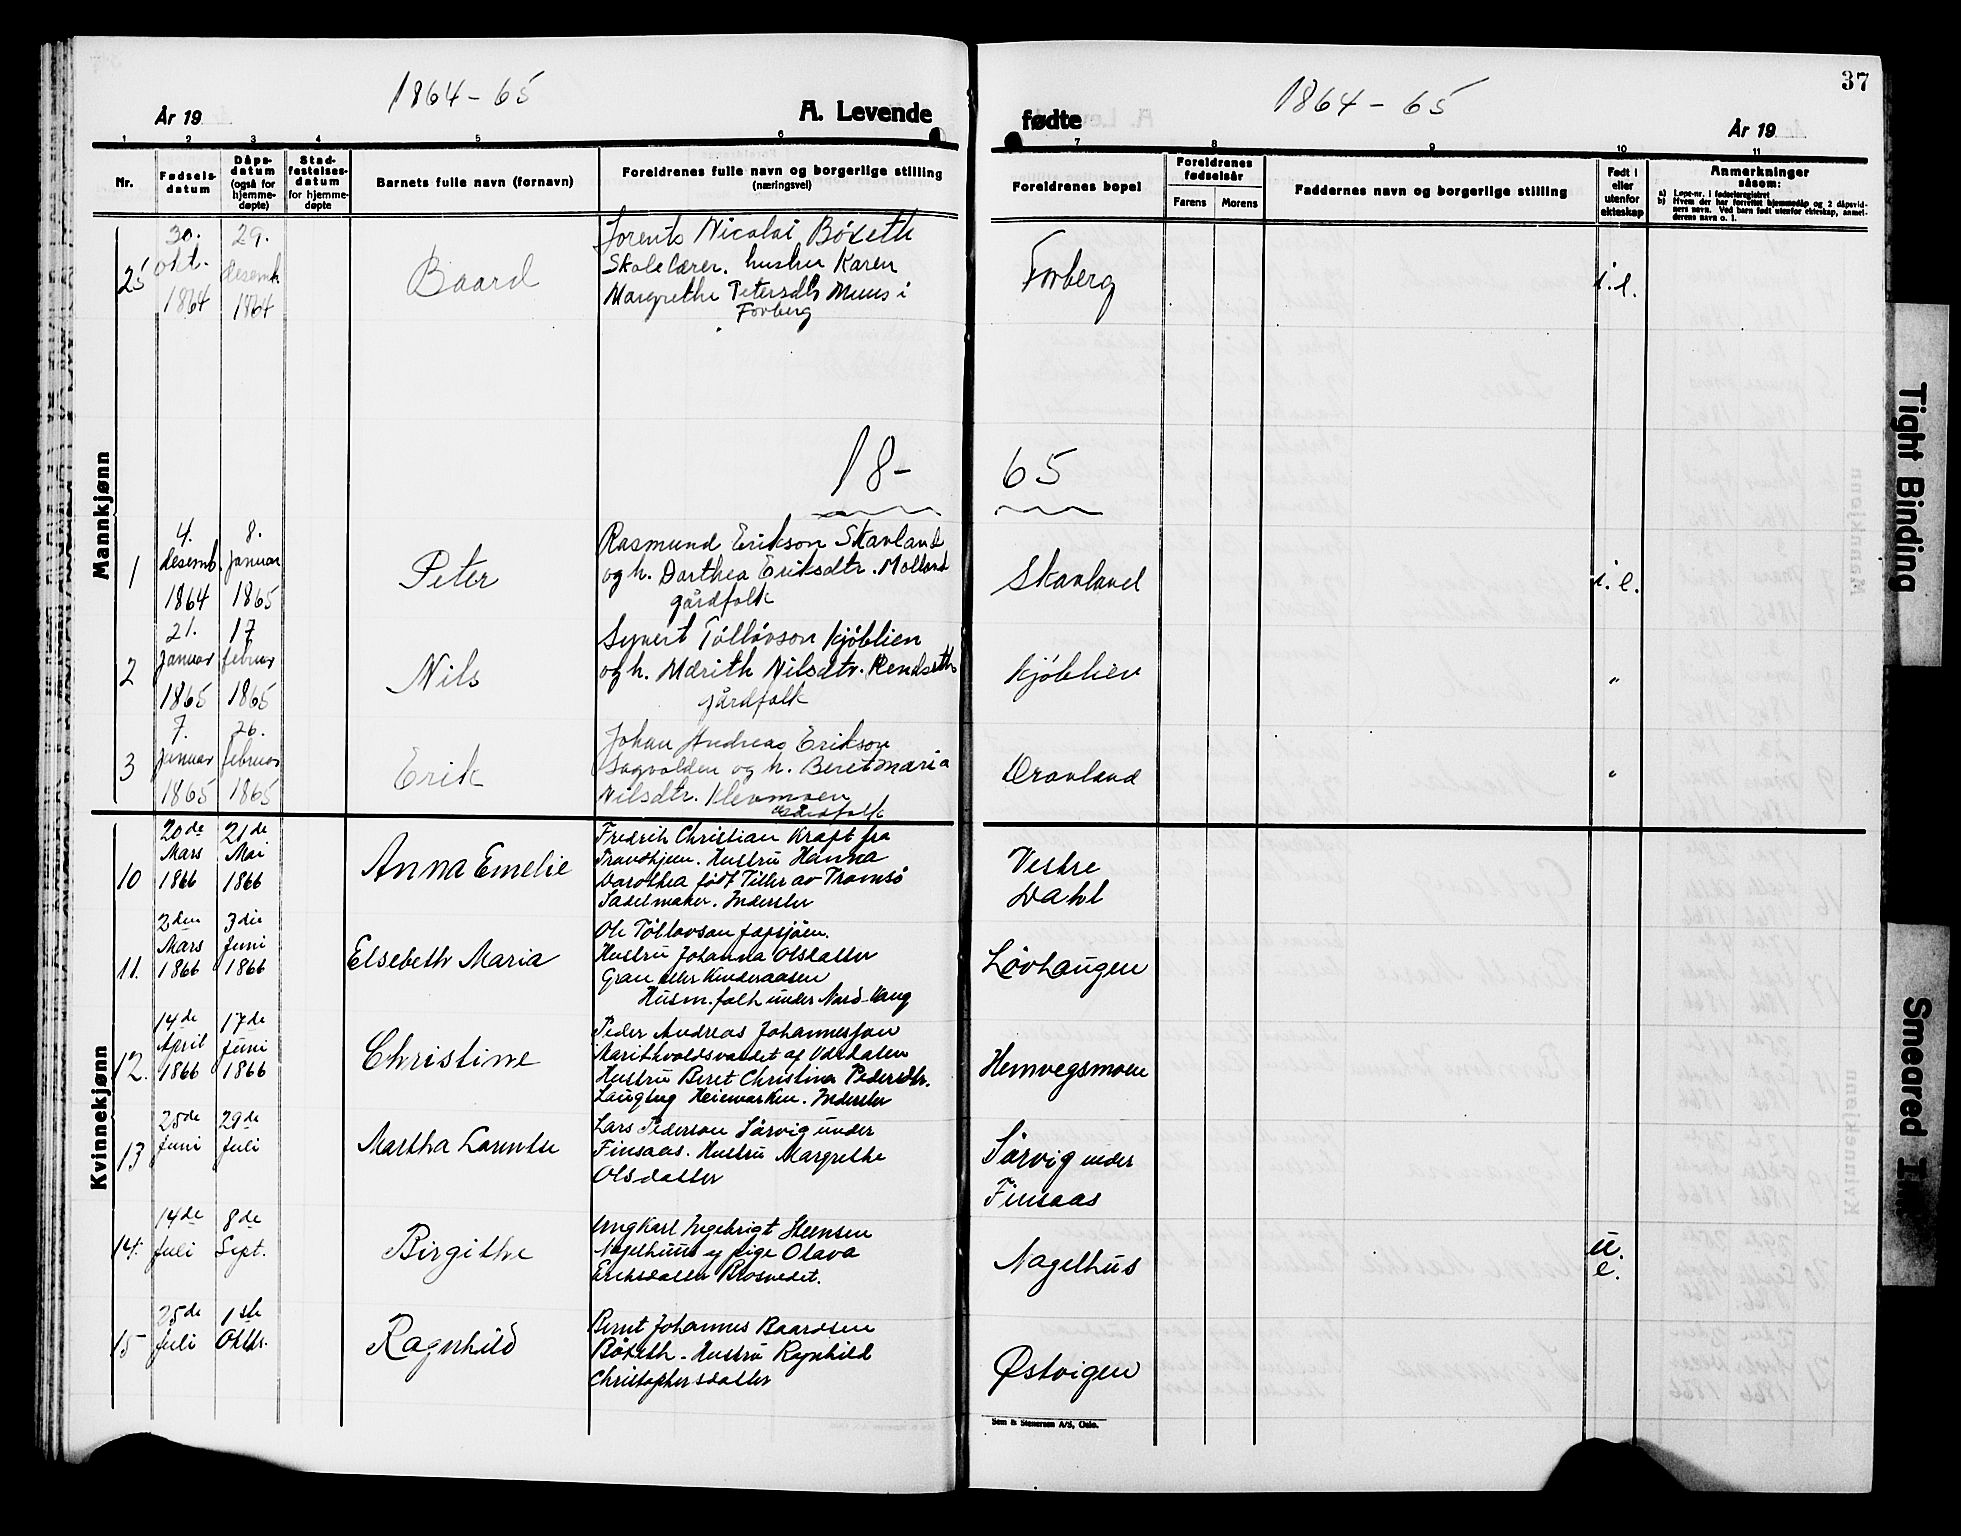 1864-65
År 19
A. Levende
1 2 3 4 5 6
Nr.
Fødselsdatum
Dåpsdatum (også for hjemmedøpte)
Stadfestelsesdatum for hjemmedøpte
Barnets fulle navn (fornavn)
Foreldrenes fulle navn og borgerlige stilling
(næringsvei)
Mannkjønn
25
30. okt. 1864
29. desemb. 1864
Baard
Nicolai Bøxeth
Skolelærer. hustru Karen
Margrethe Petersdtr Muus i
Forberg
18-
1
4. desemb. 1864
8. januar 1865
Peter
Rasmund Erikson Skavland
og h. Dorthea Eriksdtr. Molland
gårdfolk
2
21. januar 1865
17 februar 1865
Nils
Syvert Tølløvson Kjøblien
og h. Marith Nilsdtr. Rendseth
gårdfolk
3
7. januar 1865
26. februar 1865
Erik
Johan Andreas Erikson
Sagvolden og h. Beretmaria
Nilsdtr. Klevmoen
gårdfolk
Kvinnekjønn
10
20de Mars 1866
21de Mai 1866
Anna Emelie
Fredrik Christian Kraft fra
Trondhjem. Hustru Hanna
Dorothea født Tiller av Tromsø
Sadelmaker. Inderster
11.
2den Mars 1866
3die Juni 1866
Elsebeth Maria
Ole Tølløvson
Hustru Johanna Olsdatter
Gran eller
Husm.folk under Nord-Kvug
12.
14de April 1866
17de Juni 1866
Christine
Peder Andreas Johannesson
af
Hustru Beret Christina Pedersdtr.
Inderster
13
25de Juni
29de Juli
Martha Lorentse
Lars Pederson Sørvig under
Finsaas. Hustru Margrethe
Olsdatter
14.
14de Juli
8de Sept.
Birgithe
Ungkarl Ingebrigt Steensen
Nagelhuus og pige Olava
Eriksdatter
15
25de Juli
1ste Oktbr.
Ragnhild
Bernt Johannes Baardsen
Bøxeth. Hustru Ragnhild
Christophersdatter
37
1864-65
fødte
År 19
7 8 9 10 11
Foreldrenes bopel
Foreldrenes fødselsår
Farens
Morens
Faddernes navn og borgerlige stilling
Født i eller utenfor ekteskap
Anmerkninger
såsom:
a) Løpe-nr. i fødselsregistret
b) Hvem der har forrettet hjemmedåp og 2 dåpsvidners navn. Ved barn født utenfor ekteskap, anmelderens navn o. l.
Forberg
i.e.
65
Skavland
i.e.
Kjøblien
"
Dravland
"
Vestre
Dahl
Løvhaugen
Hemvegsmoen
Sørvig under
Finsaas
Nagelhus
u.
e.
Østvigen
Sem & Stenersen A/S, Oslo.
Tight Binding
Smeared